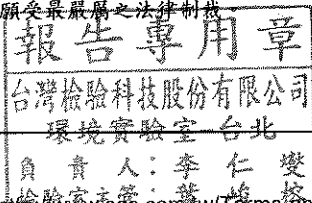 願受最嚴厲之法律制裁。
報告專用章
台灣檢驗科技股份有限公司
環境實驗室-台北
負責人：李仁燮
檢驗室主管：